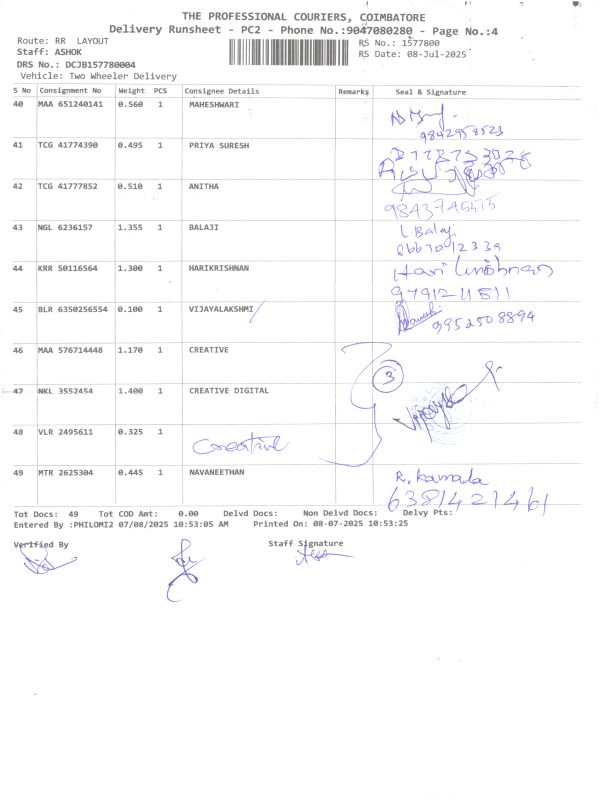 THE PROFESSIONAL COURIERS, COIMBATORE
Delivery Runsheet - PC2 - Phone No.:9047080280 - Page No.:4
Route: RR LAYOUT
RS No.: 1577800
Staff: ASHOK
RS Date: 08-Jul-2025
DRS No.: DCJB157780004
Vehicle: Two Wheeler Delivery
S No Consignment No Weight PCS Consignee Details Remarks Seal & Signature
40 MAA 651240141 0.560 1 MAHESHWARI
9842958523
41 TCG 41774390 0.495 1 PRIYA SURESH
42 TCG 41777852 0.510 1 ANITHA
9843745515
43 NGL 6236157 1.355 1 BALAJI L Balaj
8667012339
44 KRR 50116564 1.300 1 HARIKRISHNAN Hari Krishnan
9791211511
45 BLR 6350256554 0.100 1 VIJAYALAKSHMI 9952508894
46 MAA 576714448 1.170 1 CREATIVE
3
47 NKL 3552454 1.400 1 CREATIVE DIGITAL
48 VLR 2495611 0.325 1 Creative
49 MTR 2625304 0.445 1 NAVANEETHAN R. Kamala
6381421461
Tot Docs: 49 Tot COD Amt: 0.00 Delvd Docs: Non Delvd Docs: Delvy Pts:
Entered By :PHILOMI2 07/08/2025 10:53:05 AM Printed On: 08-07-2025 10:53:25
Verified By Staff Signature